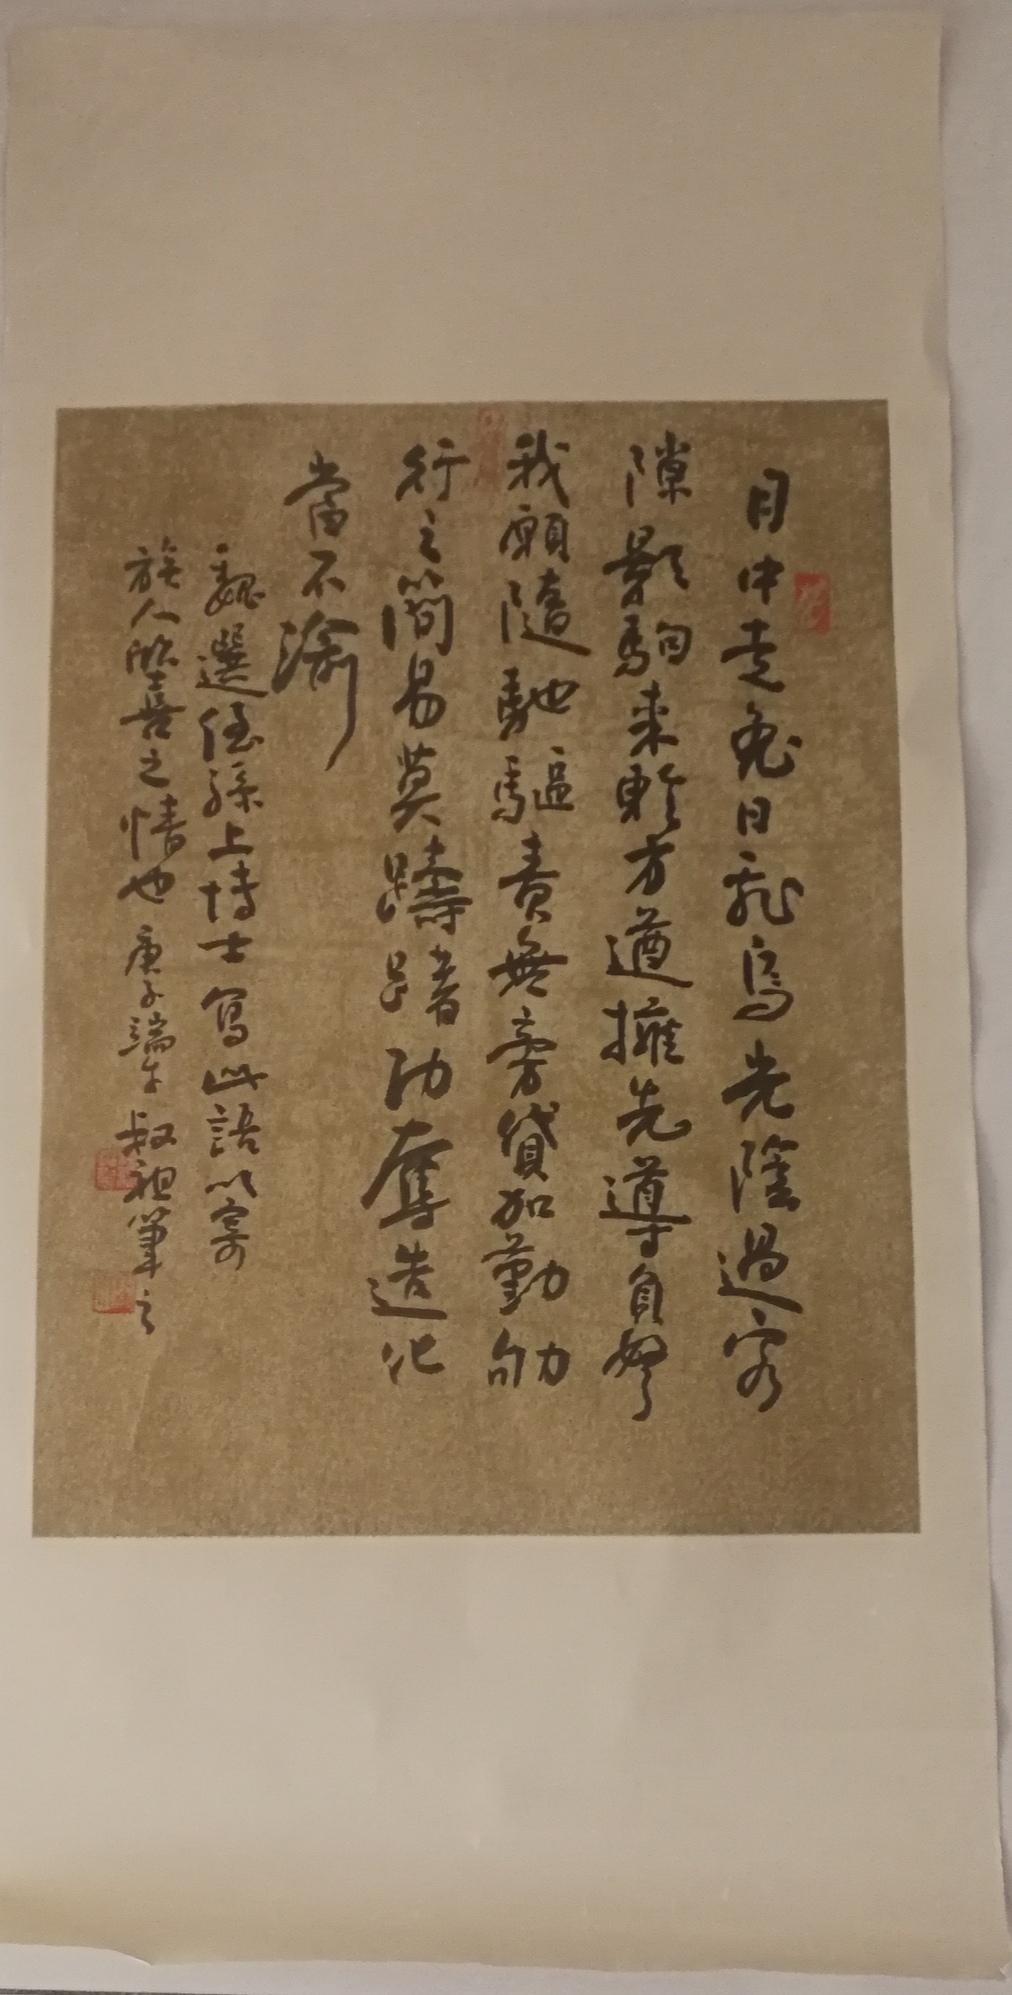 月中走兔日飛烏光陰過客
隙影駒来軫方遒擁先導負弩
我願隨馳驅責無旁貸加勤劬
行之簡易莫躊躇功奪造化
當不渝
魏選侄孫上博士寫此語以寄
族人欣喜之情也庚子端午叔祖筆之